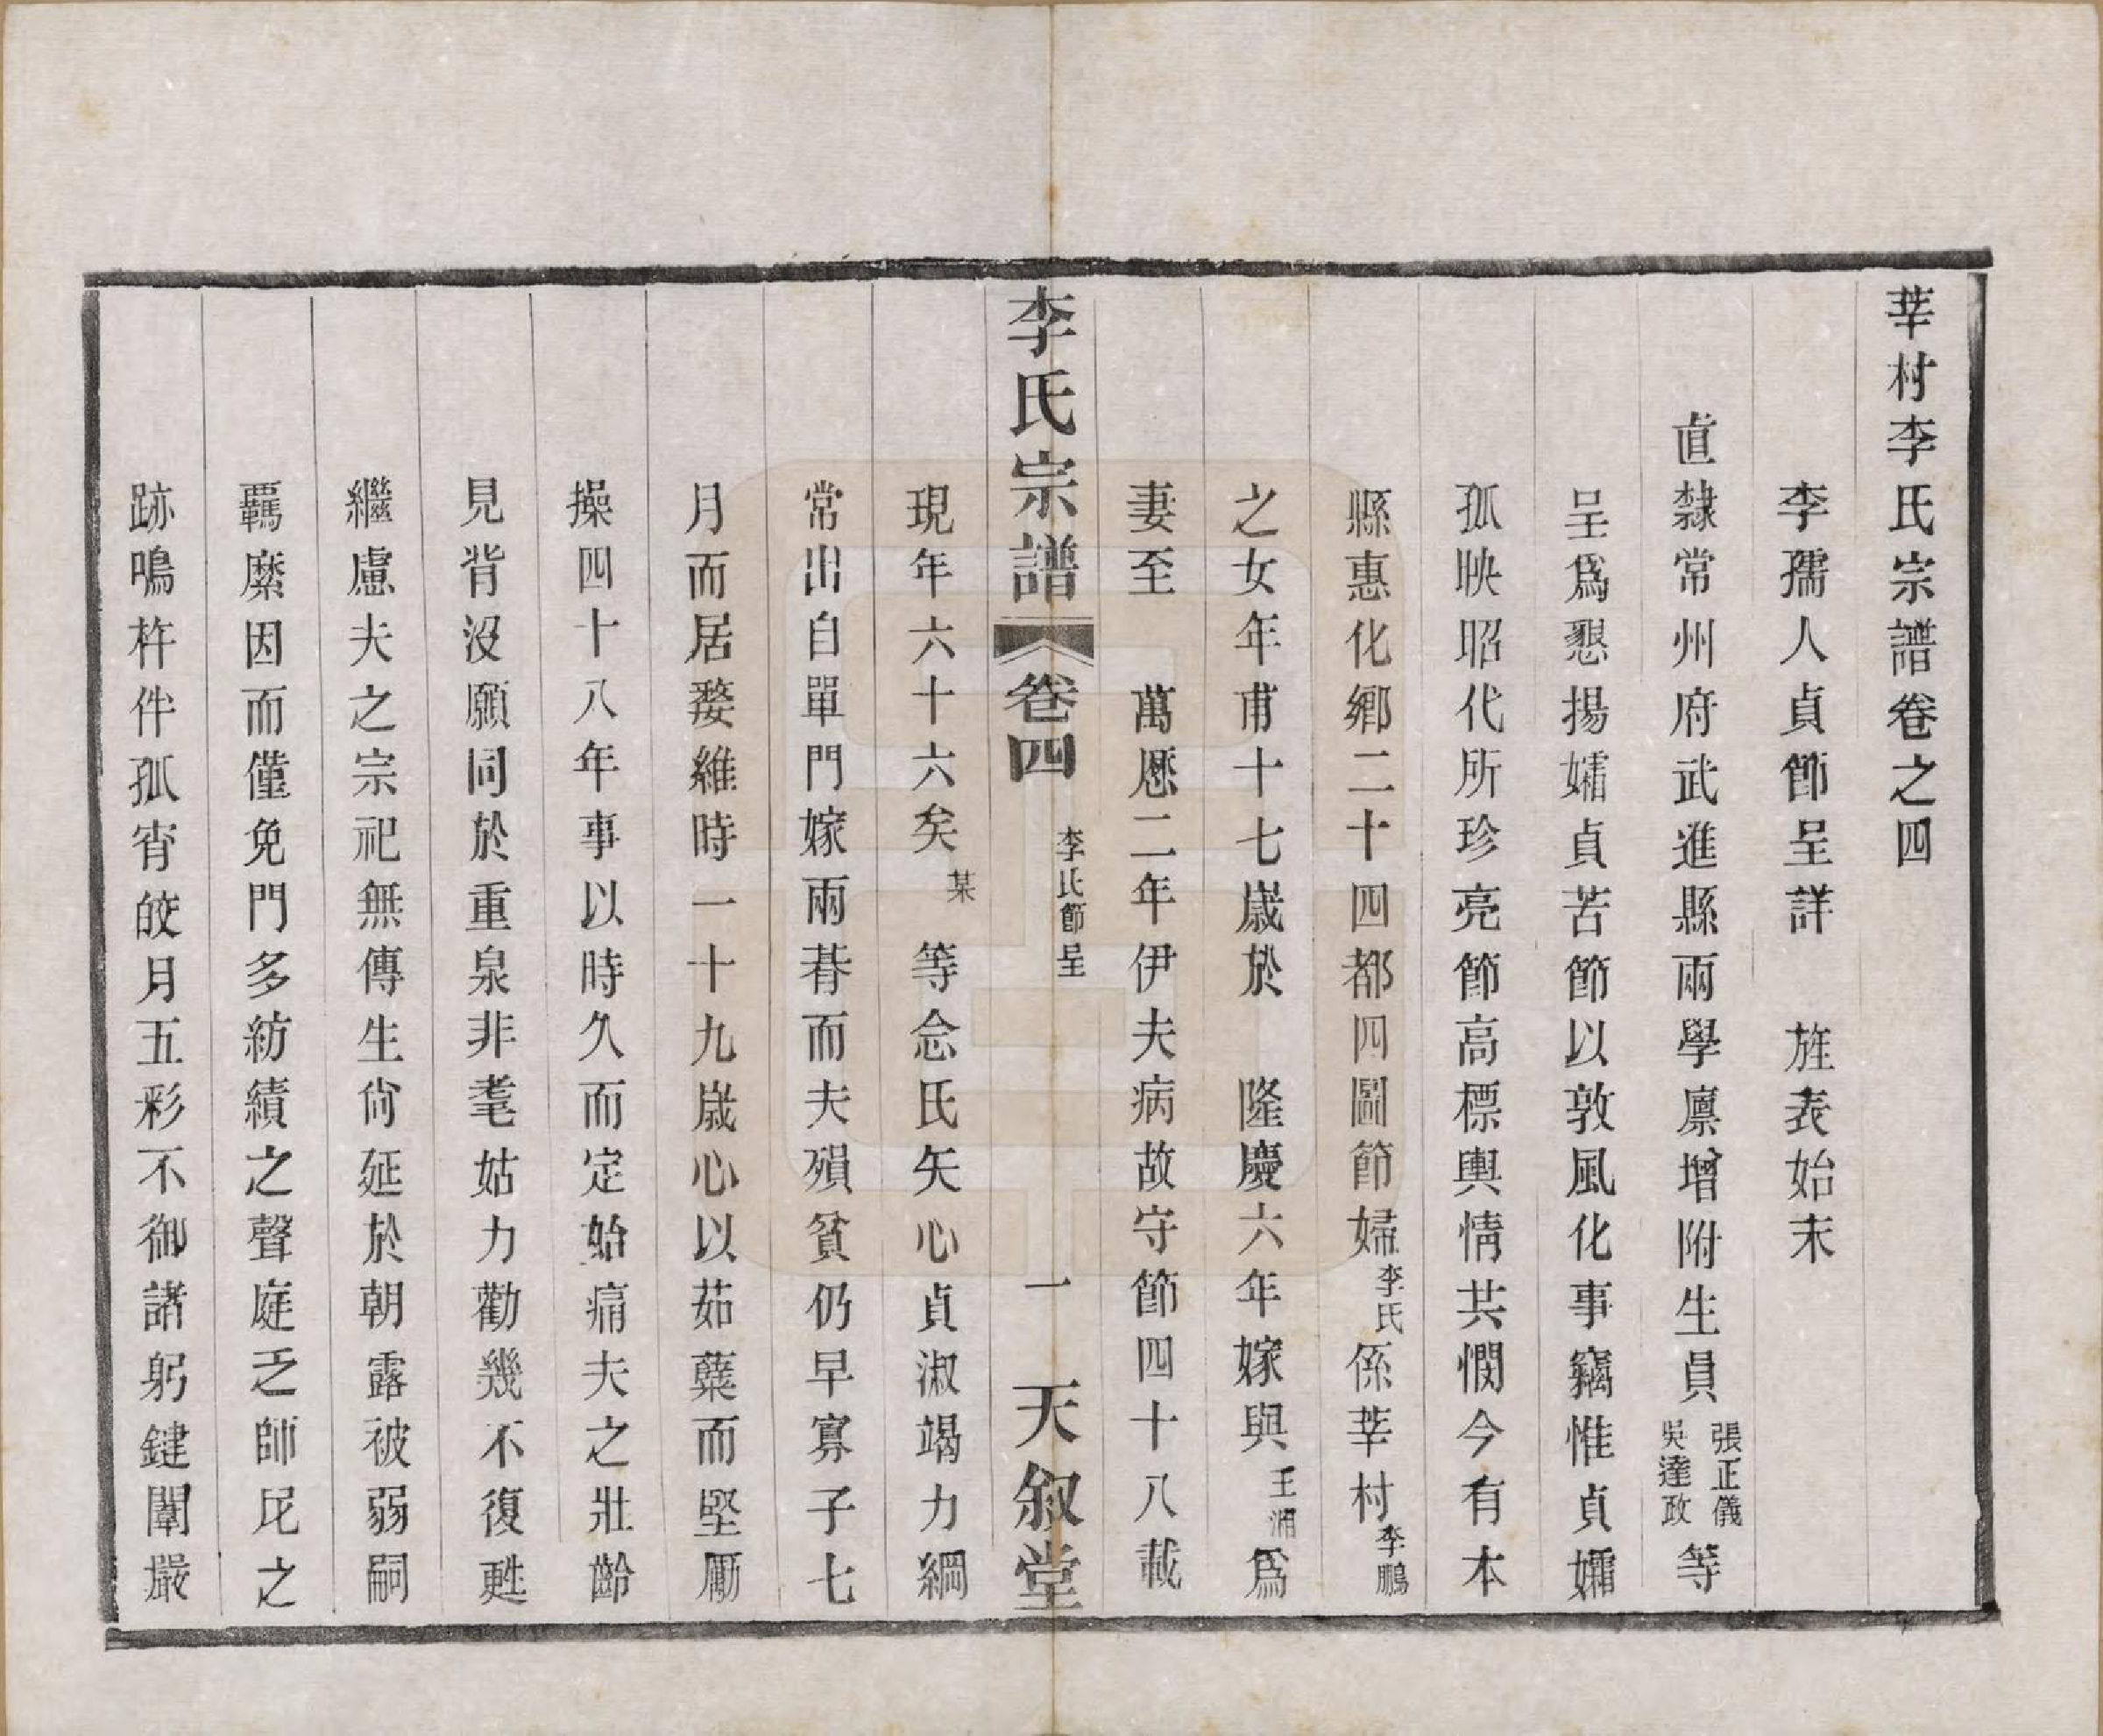 莘村李氏宗譜卷之四
李孺人貞節呈詳　旌表始末
直隸常州府武進縣兩學廩增附生員張正儀吳達政等
呈爲懇揚孀貞苦節以敦風化事竊惟貞孀
孤映昭代所珍亮節高標輿情共憫今有本
縣惠化鄉二十四都四圖節婦李氏係莘村李鵬
之女年甫十七歲於　隆慶六年嫁與王湧爲
妻至　萬厯二年伊夫病故守節四十八載
李氏宗譜　卷四　李氏節呈　一　天叙堂
現年六十六矣某等念氏矢心貞淑竭力綱
常出自單門嫁兩朞而夫殞貧仍早寡子七
月而居婺維時一十九歲心以茹蘗而堅勵
操四十八年事以時久而定始痛夫之壯齡
見背沒願同於重泉非耄姑力勸幾不復甦
繼慮夫之宗祀無傳生尙延於朝露被弱嗣
羈縻因而僅免門多紡績之聲庭乏師尼之
跡鳴杵伴孤宵皎月五彩不御諸躬鍵闈嚴